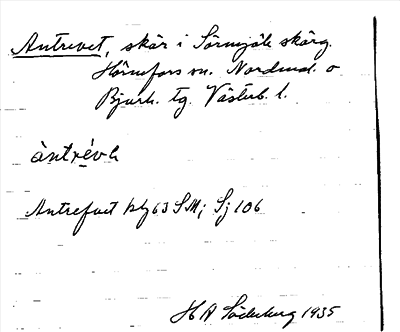 Antrevet, skär i Sörmjöle skärg.
Hörnefors sn. Nordmal. o
Bjurh. tg. Västerb. l.
àntrévh
Antrefvet blz 63 SM; Sj 106
H A Söderberg 1935